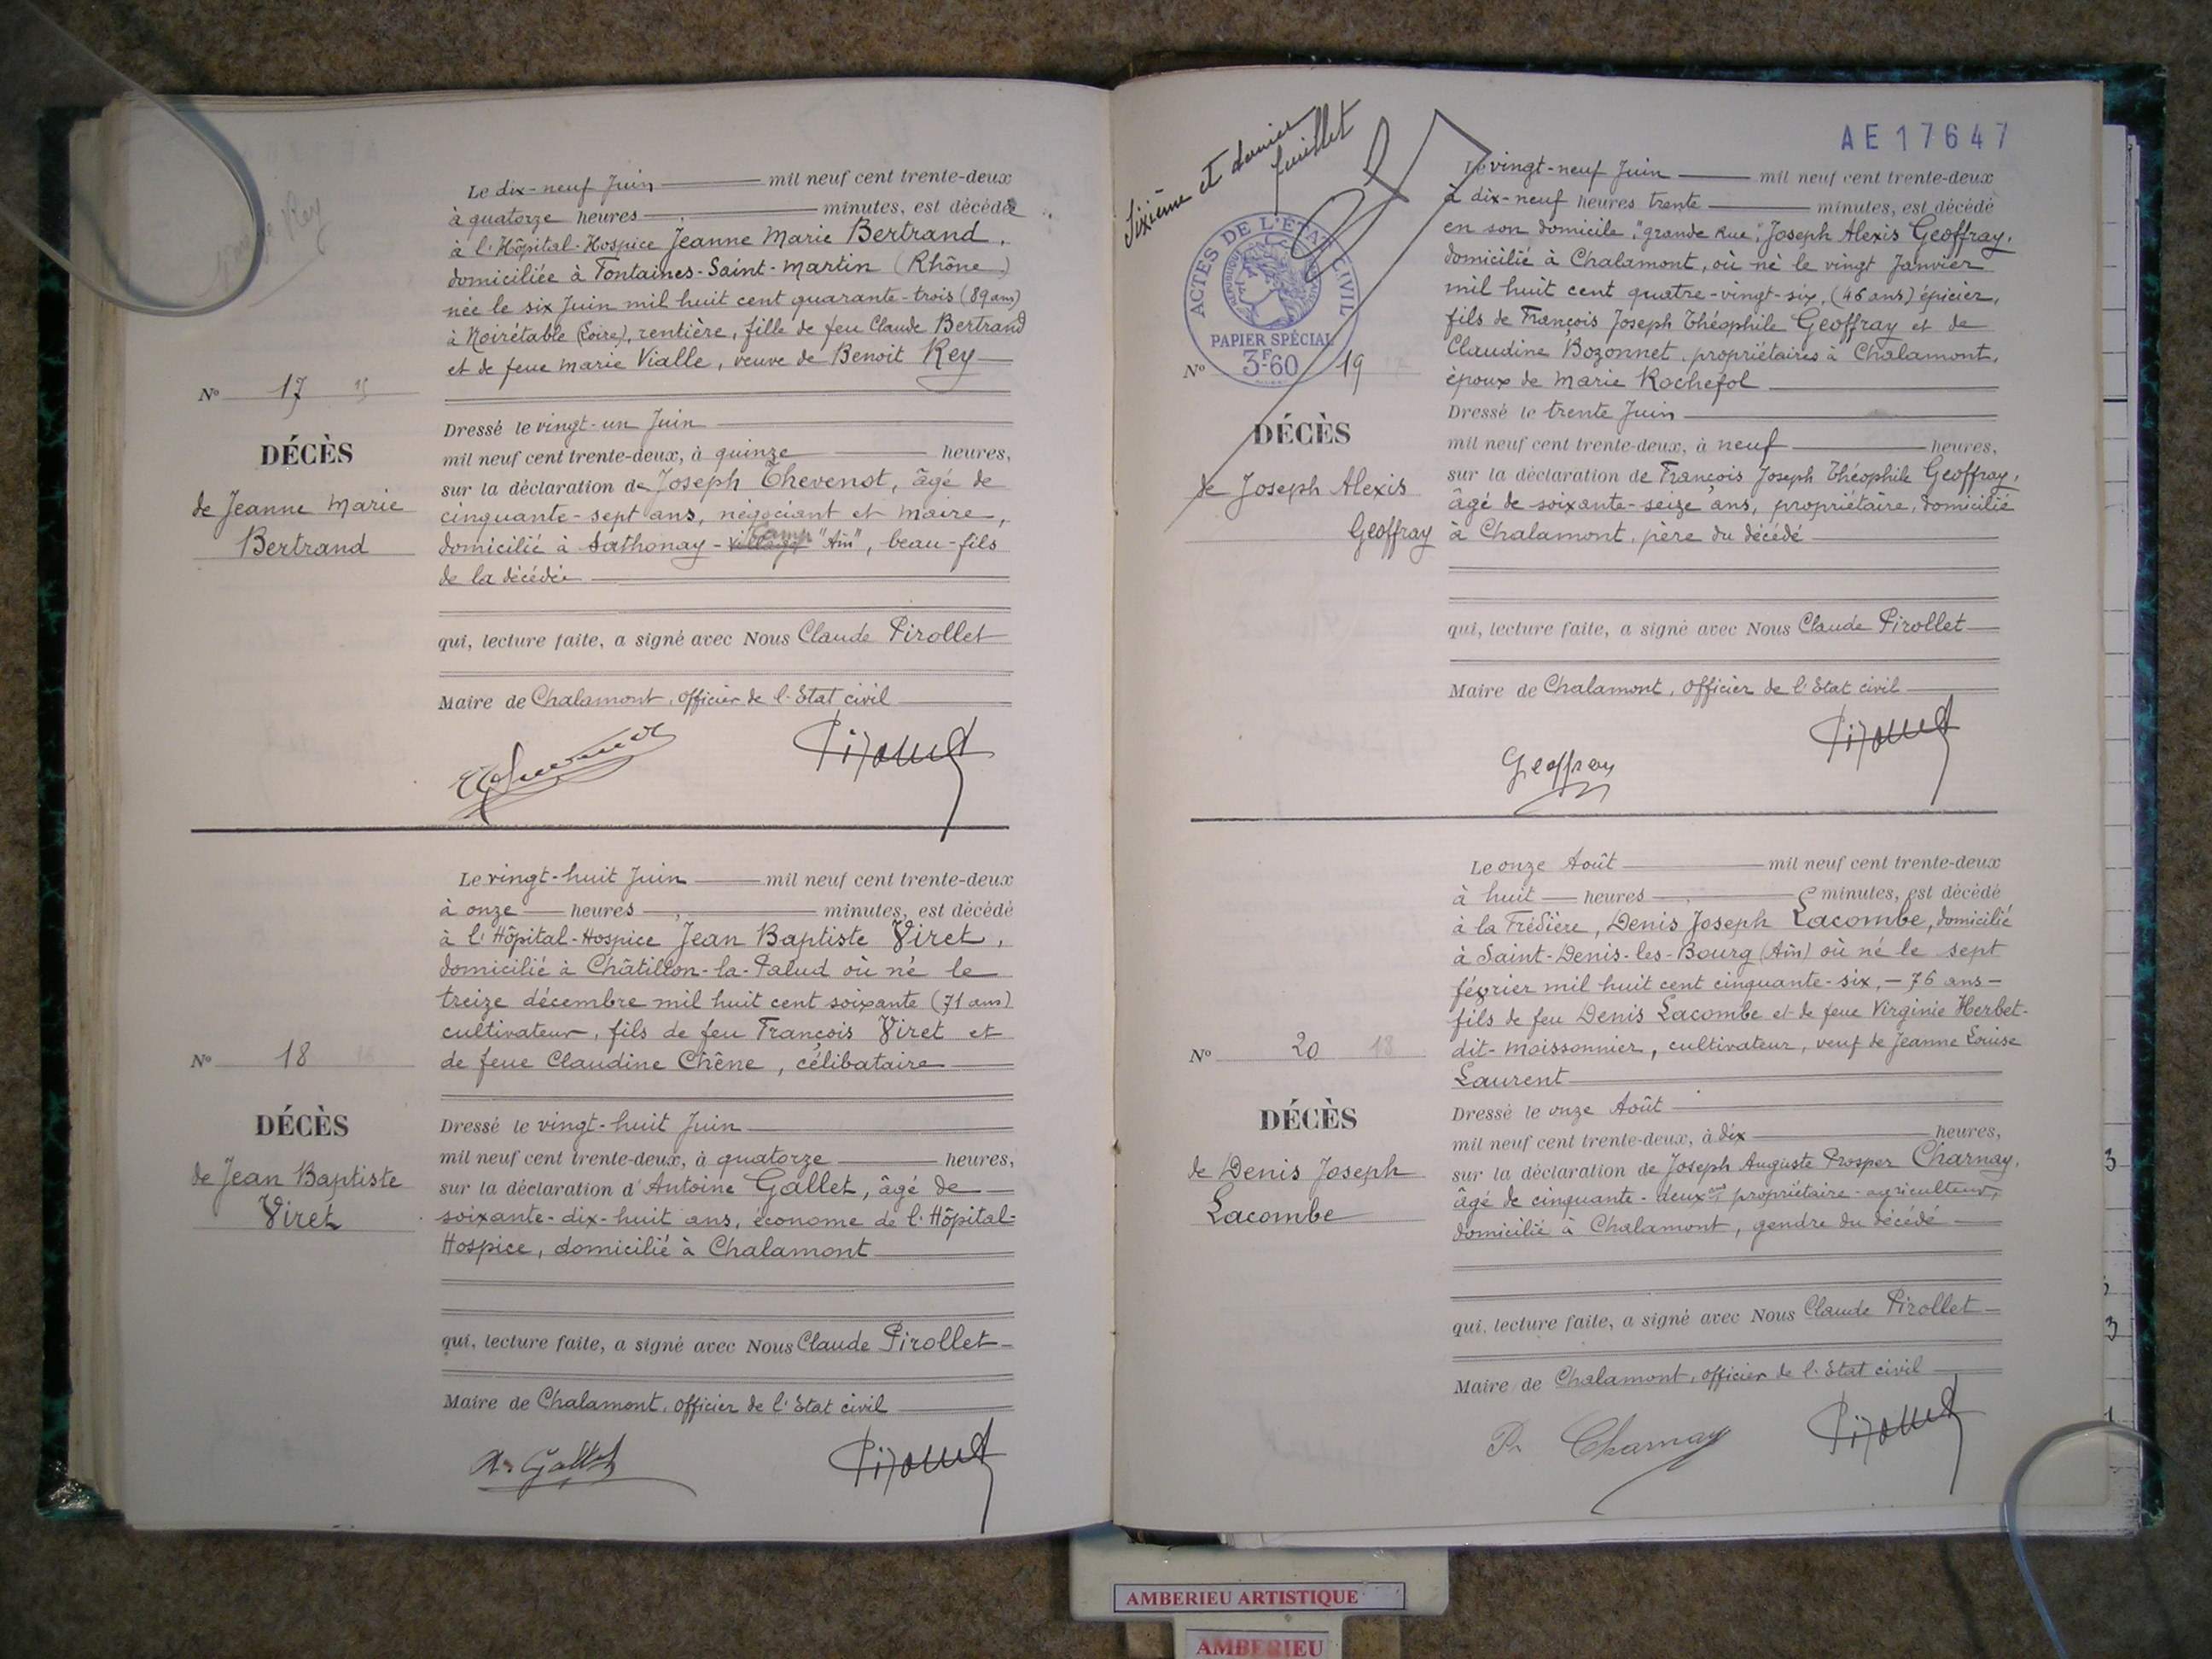 Le dix-neuf Juin mil neuf cent trente-deux
à quatorze heures minutes, est décédée
à l'Hôpital-Hospice Jeanne Marie Bertrand,
domiciliée à Fontaines-Saint-Martin (Rhône)
née le six Juin mil huit cent quarante-trois (89 ans)
à Noirétable (Loire), rentière, fille de feu Claude Bertrand
et de feue Marie Vialle, veuve de Benoit Rey
N° 17
DÉCÈS
de Jeanne Marie
Bertrand
Dressé le vingt-un Juin
mil neuf cent trente-deux, à quinze heures,
sur la déclaration de Joseph Thevenot, âgé de
cinquante-sept ans, négociant et maire,
domicilié à Sathonay-village Camp "Ain", beau-fils
de la décédée
qui, lecture faite, a signé avec Nous Claude Pirollet
Maire de Chalamont, officier de l'Etat civil
Le vingt-huit Juin mil neuf cent trente-deux
à onze heures minutes, est décédé
à l'Hôpital-Hospice Jean Baptiste Viret,
domicilié à Châtillon-la-Palud où né le
treize décembre mil huit cent soixante (71 ans)
cultivateur, fils de feu François Viret et
de feue Claudine Chêne, célibataire
N° 18
DÉCÈS
de Jean Baptiste
Viret
Dressé le vingt-huit Juin
mil neuf cent trente-deux, à quatorze heures,
sur la déclaration d'Antoine Gallet, âgé de
soixante-dix-huit ans, économe de l'Hôpital-
Hospice, domicilié à Chalamont
qui, lecture faite, a signé avec Nous Claude Pirollet
Maire de Chalamont, officier de l'Etat civil
A. Gallet
Sixième et dernier
feuillet
AE17647
ACTES DE L'ÉTAT CIVIL
PAPIER SPÉCIAL
3F60
Le vingt-neuf Juin mil neuf cent trente-deux
à dix-neuf heures trente minutes, est décédé
en son domicile, "grande Rue", Joseph Alexis Geoffray,
domicilié à Chalamont, où né le vingt Janvier
mil huit cent quatre-vingt-six, (46 ans) épicier,
fils de François Joseph Théophile Geoffray et de
Claudine Bozonnet, propriétaires à Chalamont,
époux de Marie Rochefol
N° 19
DÉCÈS
de Joseph Alexis
Geoffray
Dressé le trente Juin
mil neuf cent trente-deux, à neuf heures,
sur la déclaration de François Joseph Théophile Geoffray,
âgé de soixante-seize ans, propriétaire, domicilié
à Chalamont, père du décédé
qui, lecture faite, a signé avec Nous Claude Pirollet
Maire de Chalamont, officier de l'Etat civil
Geoffray
Le onze Août mil neuf cent trente-deux
à huit heures minutes, est décédé
à la Frédière, Denis Joseph Lacombe, domicilié
à Saint-Denis-les-Bourg (Ain) où né le sept
février mil huit cent cinquante-six, - 76 ans -
fils de feu Denis Lacombe et de feue Virginie Herbet-
dit-Moissonnier, cultivateur, veuf de Jeanne Louise
Laurent
N° 20 18
DÉCÈS
de Denis Joseph
Lacombe
Dressé le onze Août
mil neuf cent trente-deux, à dix heures,
sur la déclaration de Joseph Auguste Prosper Charnay,
âgé de cinquante-deux ans, propriétaire-agriculteur,
domicilié à Chalamont, gendre du décédé
qui, lecture faite, a signé avec Nous Claude Pirollet
Maire de Chalamont, officier de l'Etat civil
Pr Charnay
AMBERIEU ARTISTIQUE
AMBERIEU